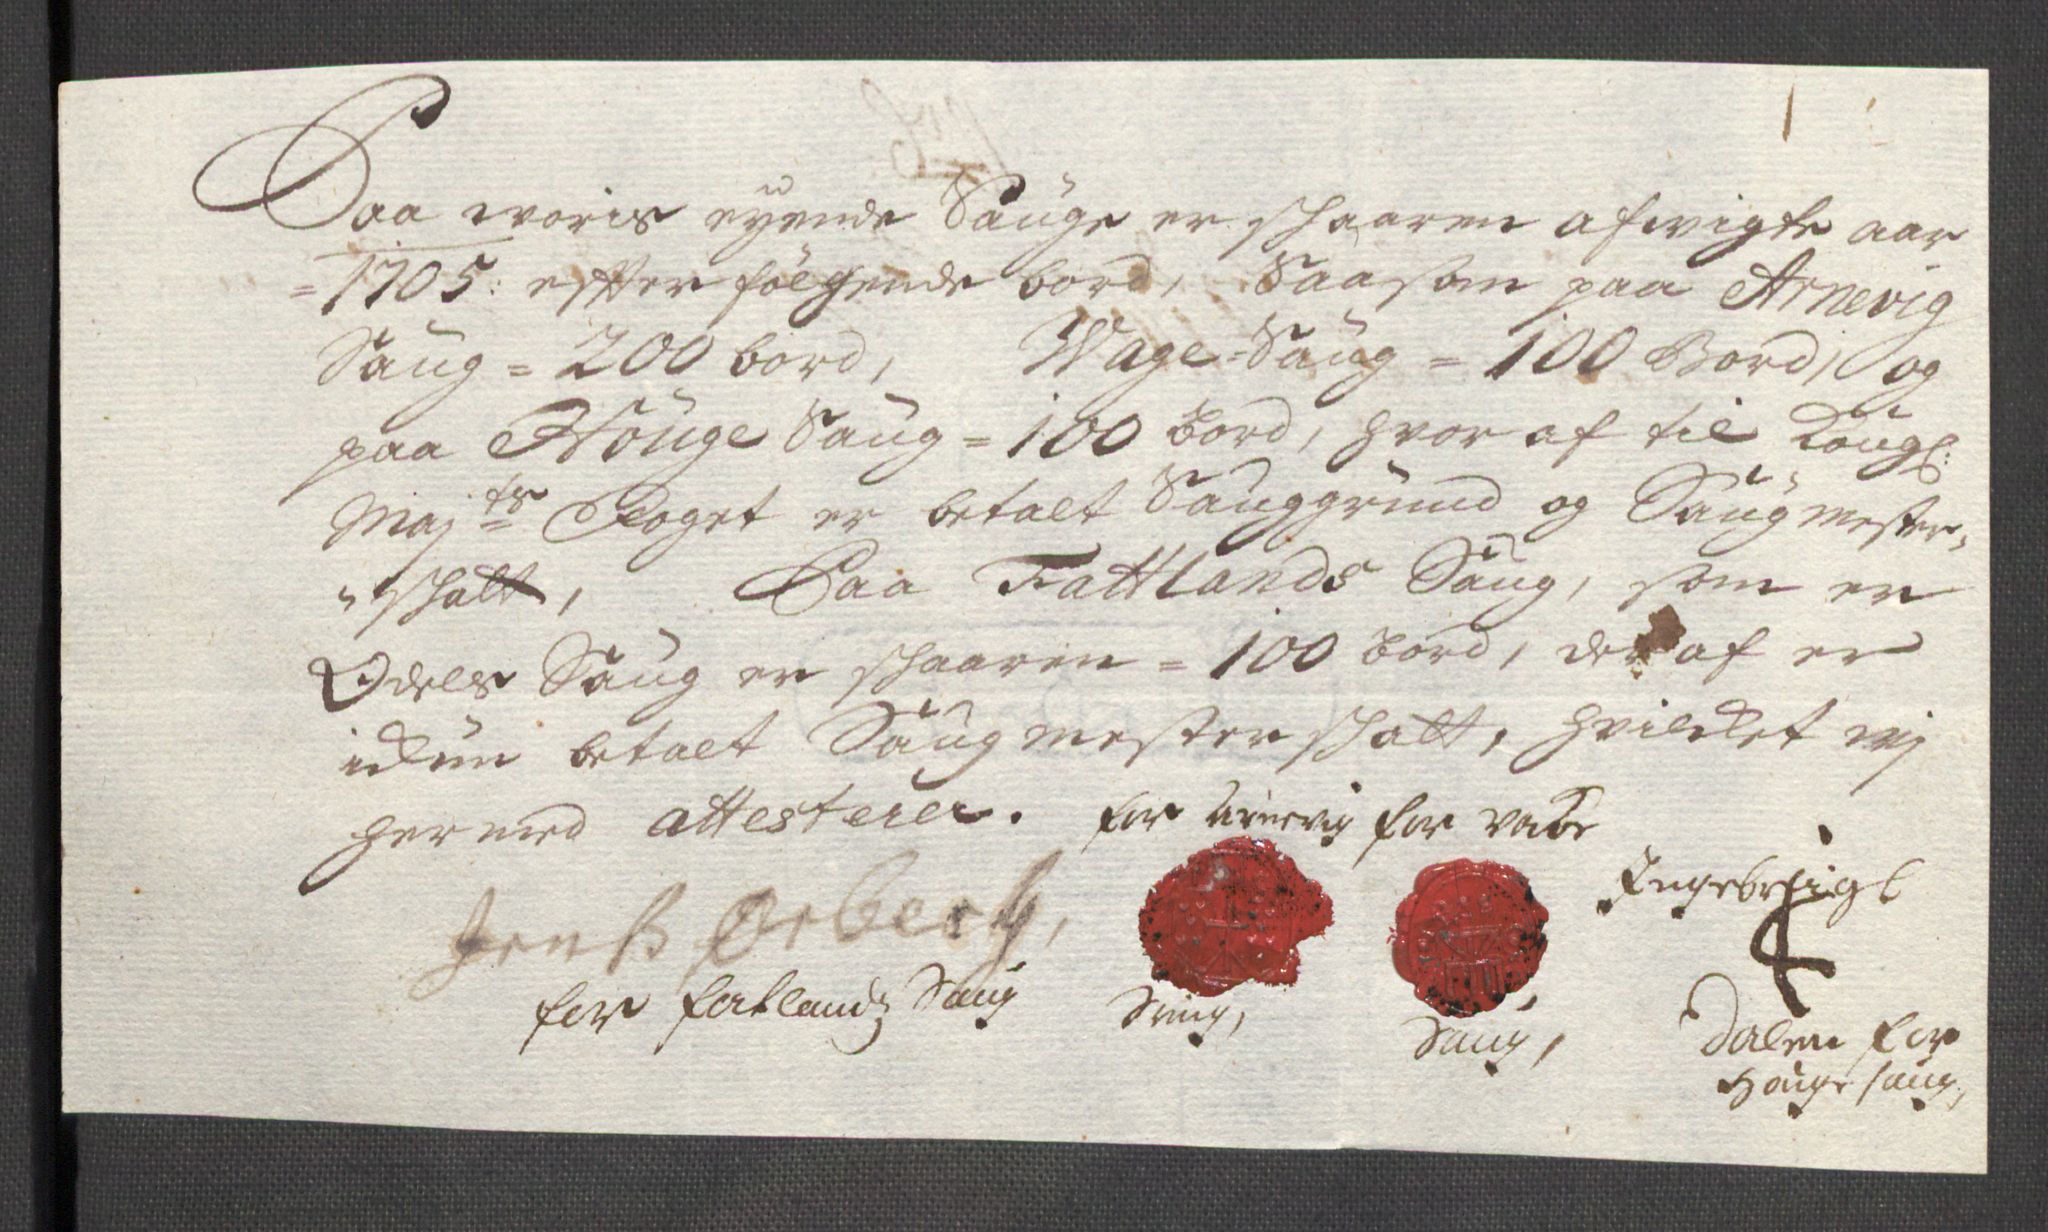 Paa woris eyende Sauge er schaaren afwigte aar
= 1705: effter fölgende bord, Saasom paa Arnevig
Saug = 200 bord, Wage-Saug = 100 Bord, og
paa Höuge Saug = 100 bord, hvor af til Kongl:
Maj:ts Foget er betalt Sauggrund og Saugmester-
schatt, Paa Fattlands Saug, som er
Odels Saug er schaaren = 100 bord, der af er
ickun betalt Saugmesterschatt, hvilcket vj
hermed attesterer. for Arnevig for Vage
Jenß Orbech,
Ingebrigt
for fatlandz Saug
Saug,
Saug,
Dalen for
Houge saug,